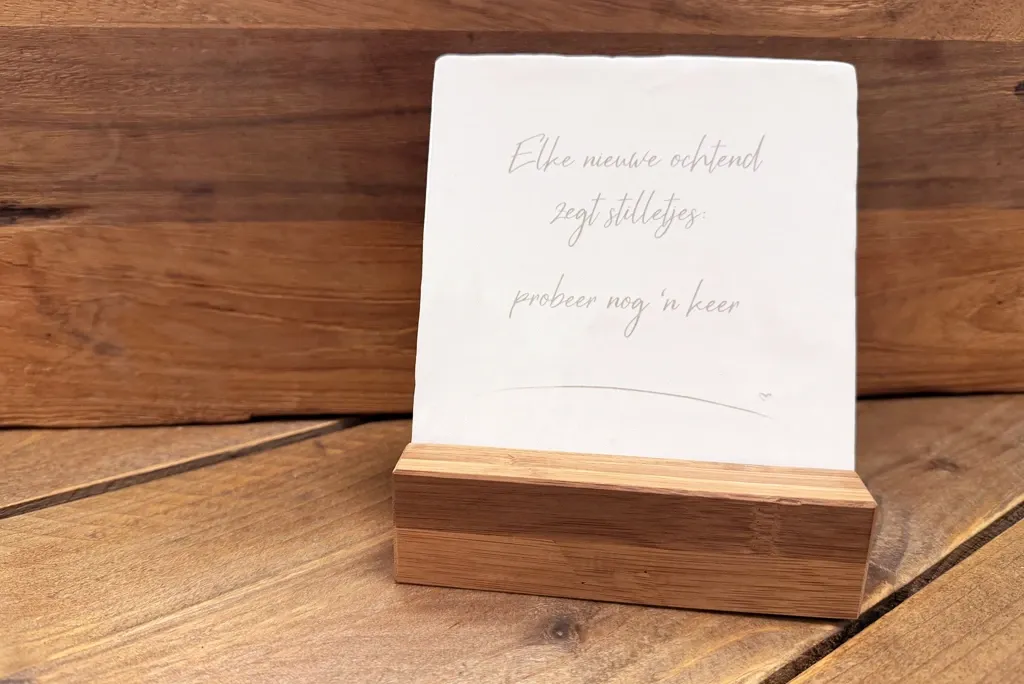 Elke nieuwe ochtend
zegt stilletjes:
probeer nog 'n keer